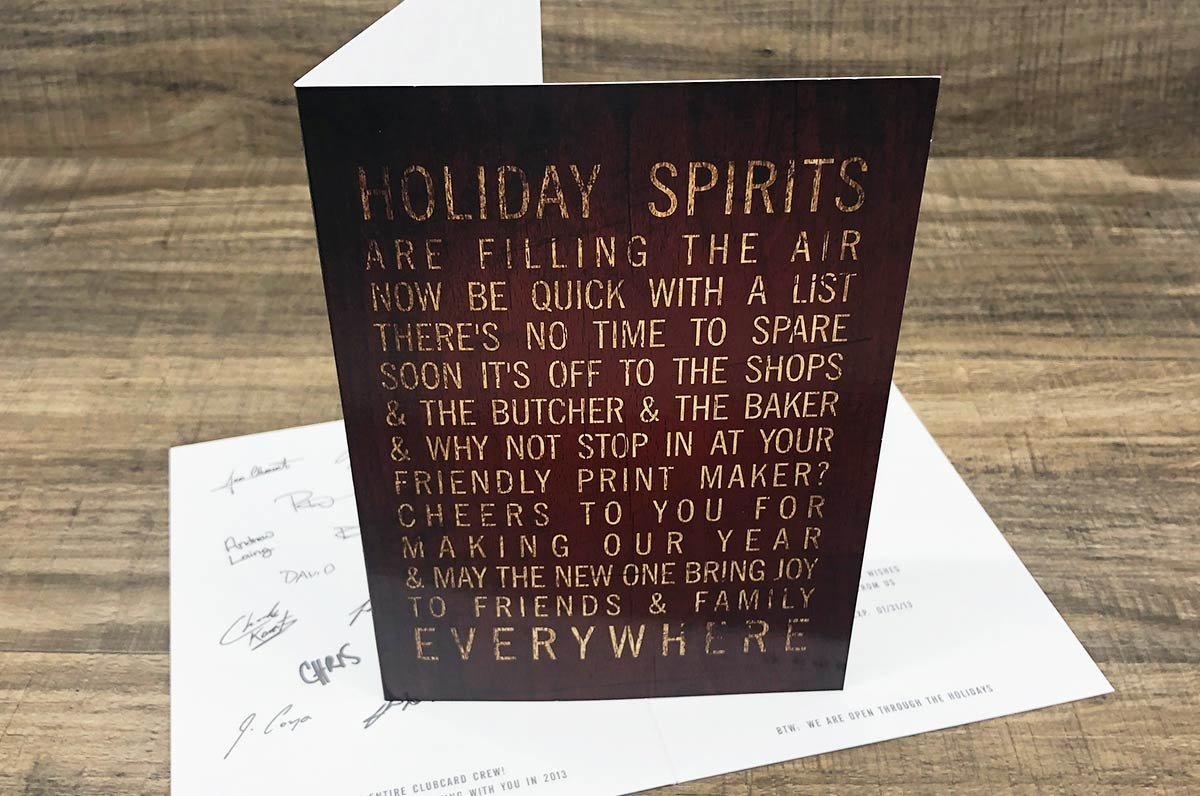 HOLIDAY SPIRITS
ARE FILLING THE AIR
NOW BE QUICK WITH A LIST
THERE'S NO TIME TO SPARE
SOON IT'S OFF TO THE SHOPS
& THE BUTCHER & THE BAKER
& WHY NOT STOP IN AT YOUR
FRIENDLY PRINT MAKER?
CHEERS TO YOU FOR
MAKING OUR YEAR
& MAY THE NEW ONE BRING JOY
TO FRIENDS & FAMILY
EVERYWHERE
Andrew
Laing
DAVID
CHRIS
J. Coya
ENTIRE CLUBCARD CREW!
WITH YOU IN 2013
WISHES
FROM US
EXP. 01/31/13
BTW: WE ARE OPEN THROUGH THE HOLIDAYS